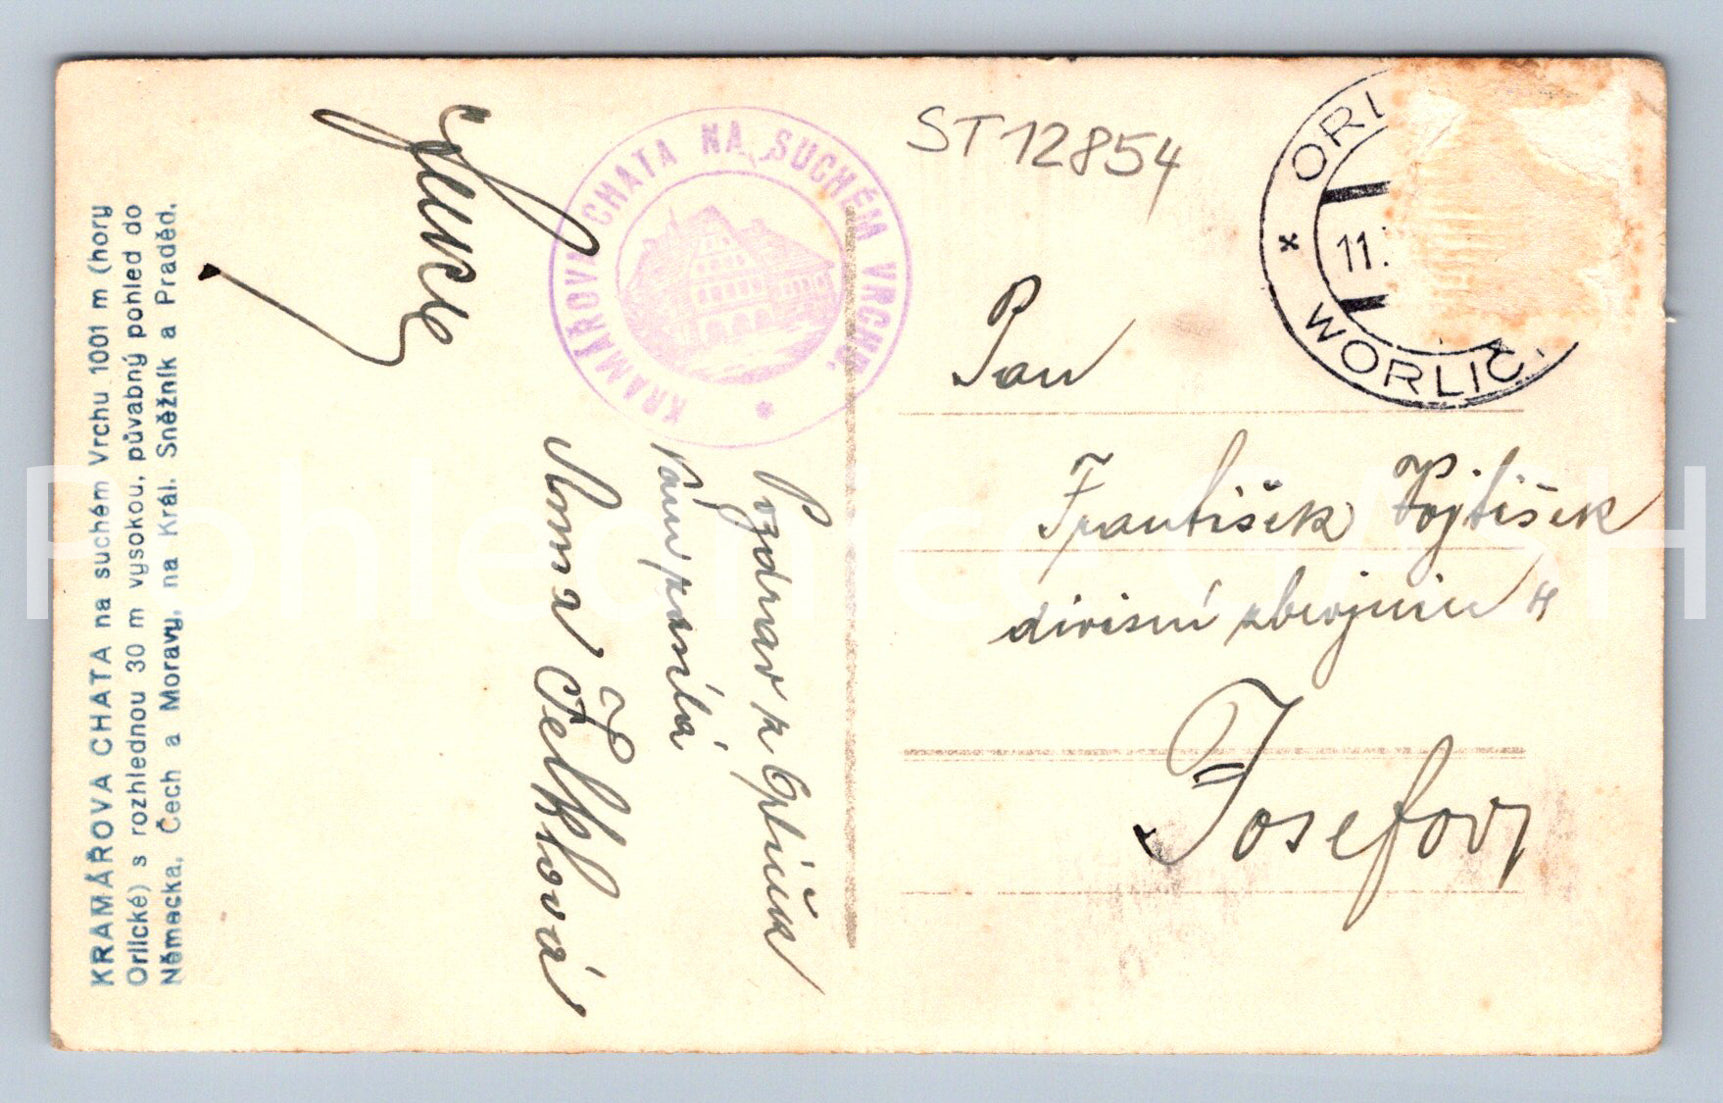 KRAMÁŘOVA CHATA na suchém Vrchu 1001 m (hory
Orlické) s rozhlednou 30 m vysokou, půvabný pohled do
Německa, Čech a Moravy, na Král. Sněžník a Praděd.
KRAMÁŘOVA CHATA NA SUCHÉM VRCHU.
ST12854
ORL
* 11.
WORLIČ
Pozdrav z
Vám posílá
Anna Čelklová
Pan
František Vojtíšek
divisní zbrojnice 4
Josefov
Pohlednice CASH